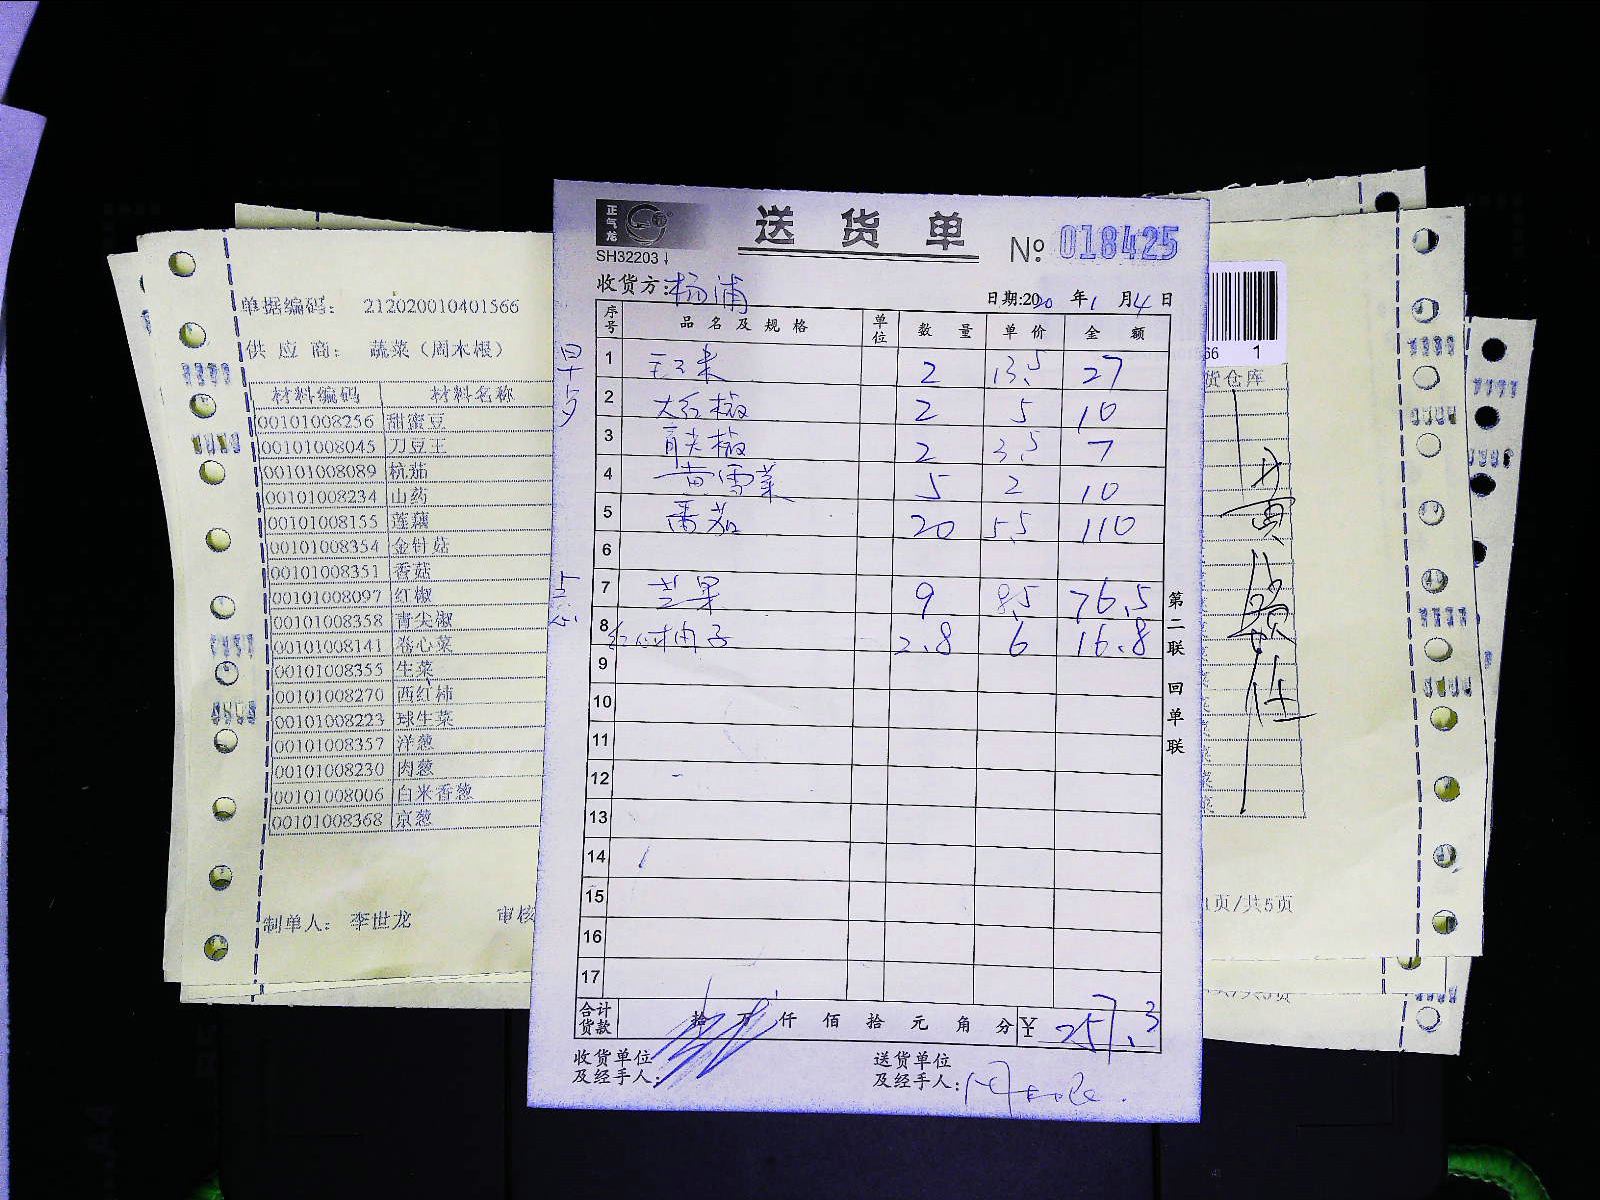 正气龙
送货单
SH32203
№ 018425
收货方：杨浦
日期:2020年1月4日
序号 品名及规格 单位 数量 单价 金额
早点
1 玉米 2 13.5 27
2 大红椒 2 5 10
3 青尖椒 2 3.5 7
4 黄雪菜 5 2 10
5 番茄 20 5.5 110
6
点心
7 芒果 9 8.5 76.5
8 红心柚子 2.8 6 16.8
9
10
11
12
13
14
15
16
17
合计货款 拾 万 仟 佰 拾 元 角 分 ¥ 257.3
收货单位及经手人：
送货单位及经手人：
第二联 回单联
单据编码： 212020010401566
供应商： 蔬菜（周木根）
材料编码 材料名称
00101008256 甜蜜豆
00101008045 刀豆王
00101008089 杭茄
00101008234 山药
00101008155 莲藕
00101008354 金针菇
00101008351 香菇
00101008097 红椒
00101008358 青尖椒
00101008141 卷心菜
00101008355 生菜
00101008270 西红柿
00101008223 球生菜
00101008357 洋葱
00101008230 肉葱
00101008006 白米香葱
00101008368 京葱
制单人： 李世龙
审核
66 1
货仓库
1页/共5页